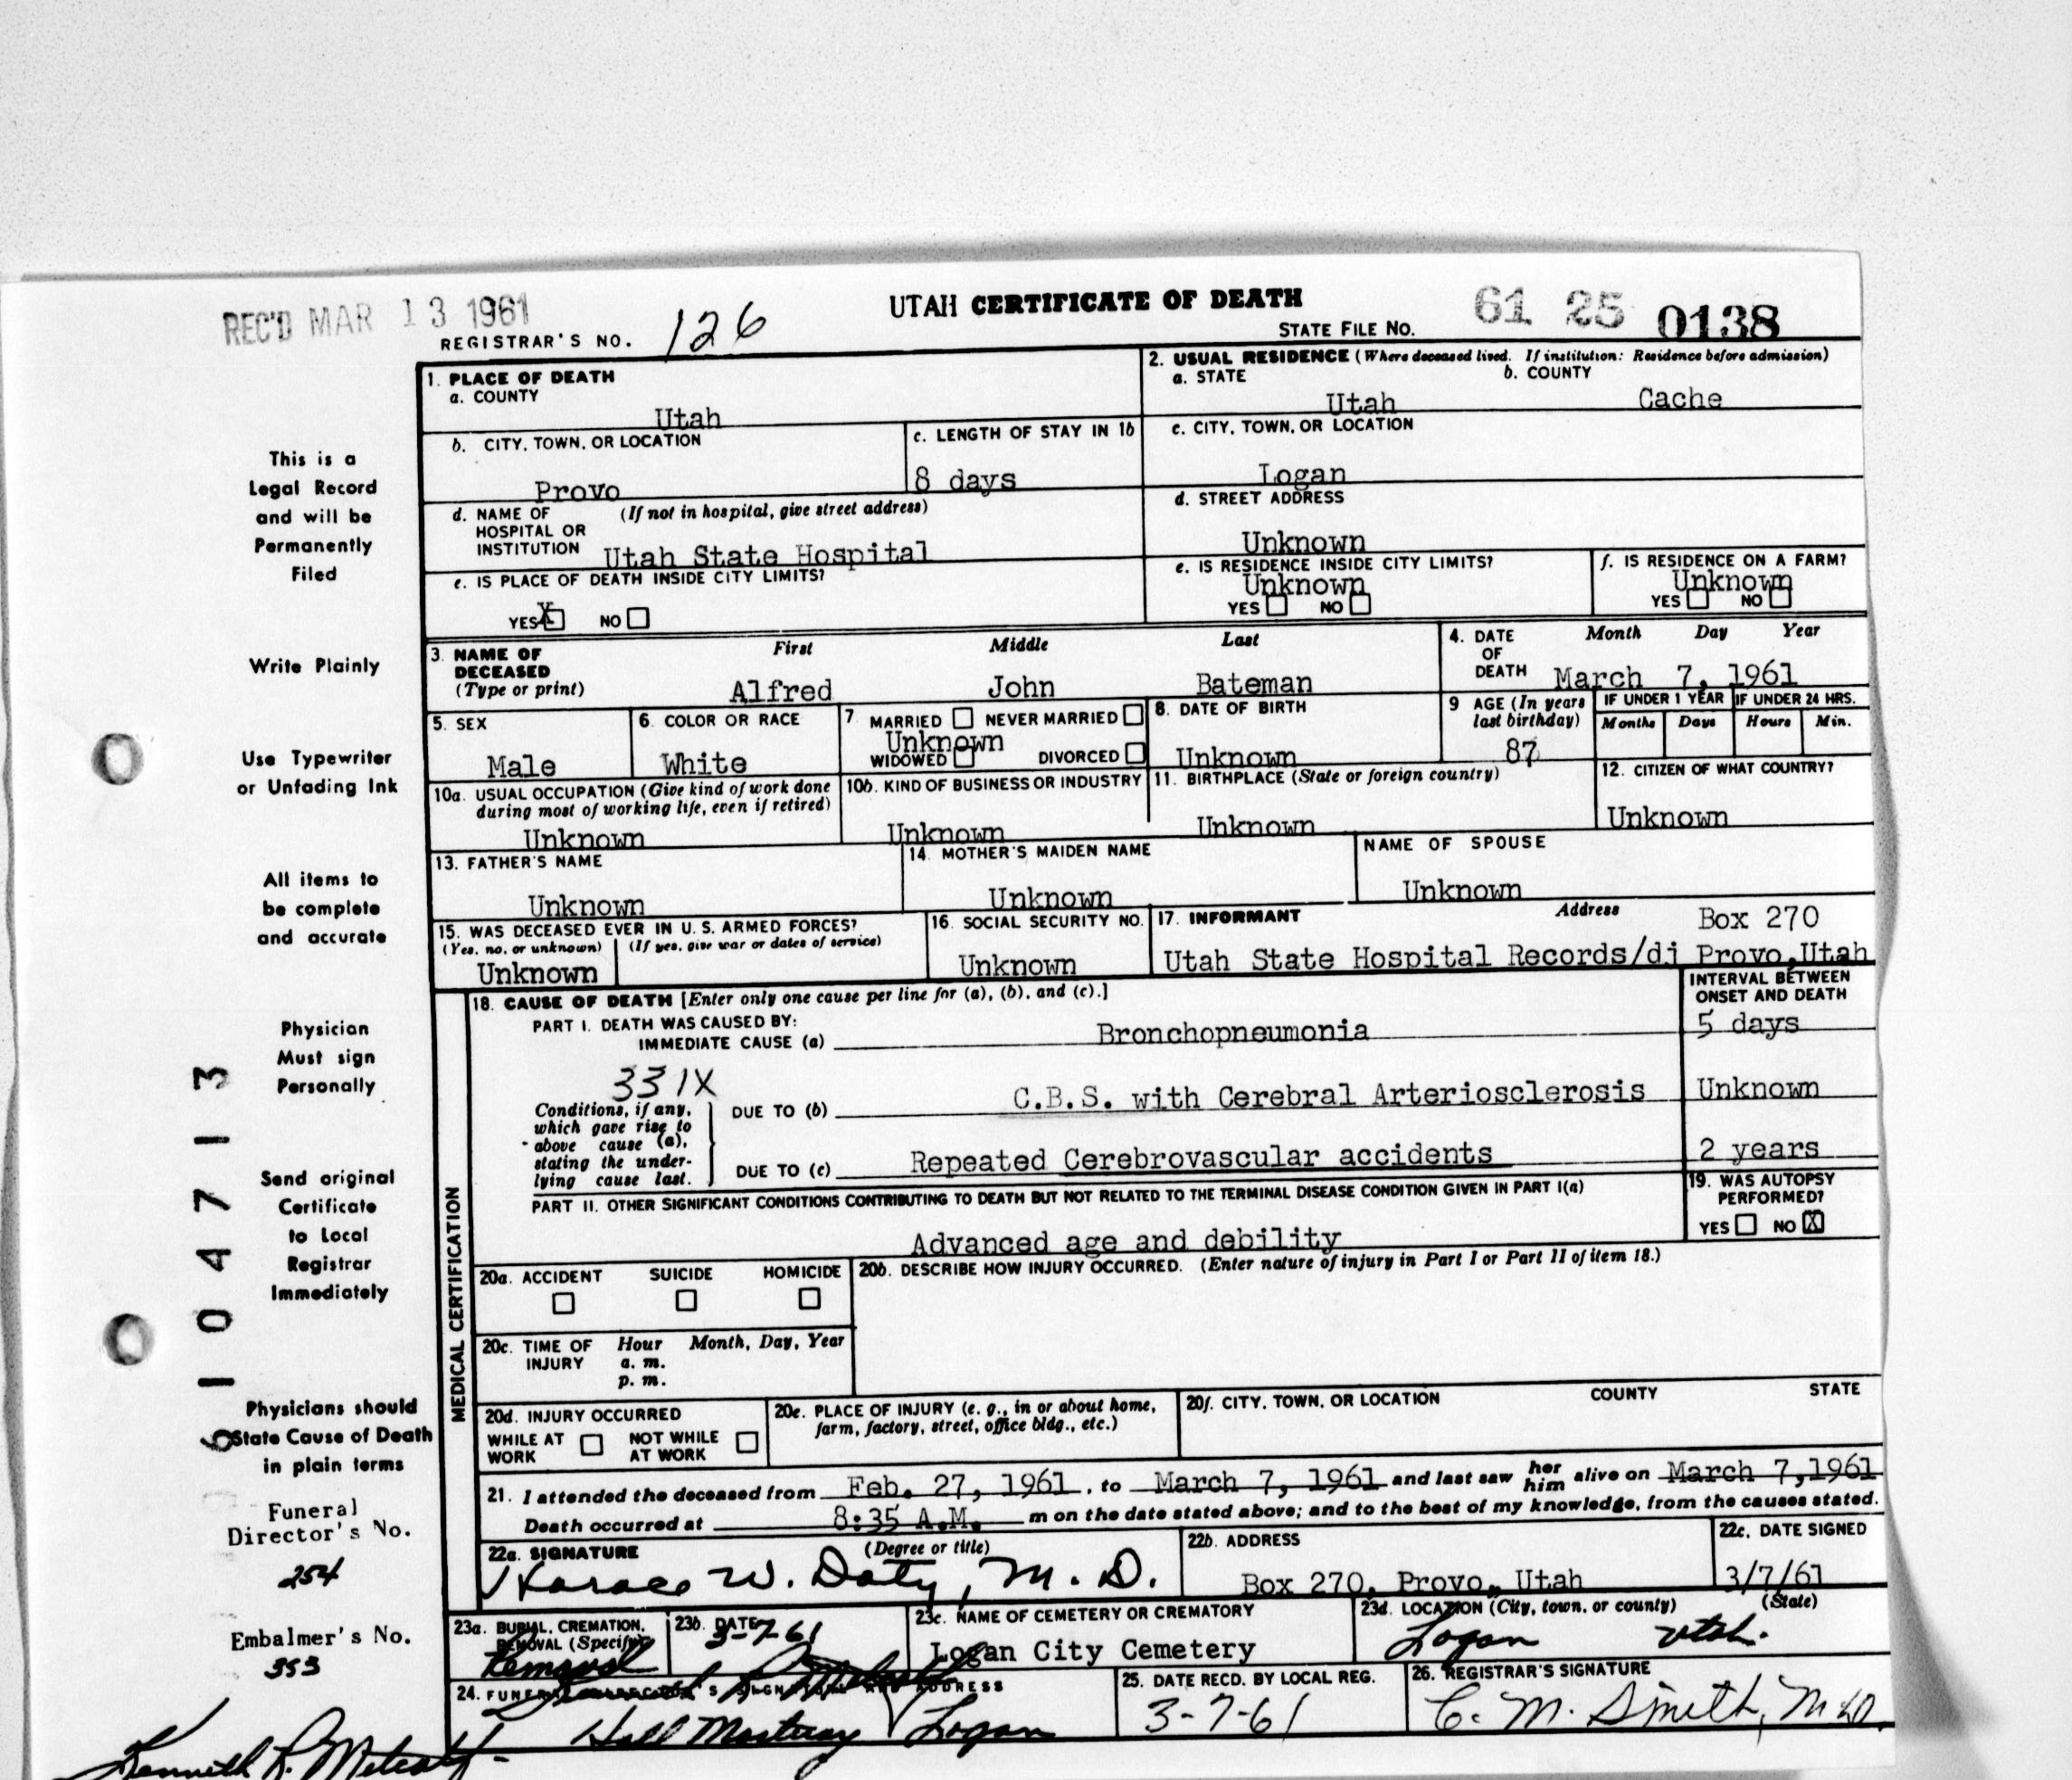 REC'D MAR 13 1961
UTAH CERTIFICATE OF DEATH
61 25 0138
REGISTRAR'S NO. 126
STATE FILE NO.
1. PLACE OF DEATH
a. COUNTY
Utah
2. USUAL RESIDENCE (Where deceased lived. If institution: Residence before admission)
a. STATE b. COUNTY
Utah Cache
b. CITY, TOWN, OR LOCATION
Provo
c. LENGTH OF STAY IN 1b
8 days
c. CITY, TOWN, OR LOCATION
Logan
d. NAME OF (If not in hospital, give street address)
HOSPITAL OR
INSTITUTION Utah State Hospital
d. STREET ADDRESS
Unknown
e. IS PLACE OF DEATH INSIDE CITY LIMITS?
YES X NO
e. IS RESIDENCE INSIDE CITY LIMITS?
Unknown
YES NO
f. IS RESIDENCE ON A FARM?
Unknown
YES NO
3. NAME OF DECEASED (Type or print)
First Middle Last
Alfred John Bateman
4. DATE OF DEATH
Month Day Year
March 7, 1961
5. SEX
Male
6. COLOR OR RACE
White
7 MARRIED NEVER MARRIED
Unknown
WIDOWED DIVORCED
8. DATE OF BIRTH
Unknown
9 AGE (In years last birthday)
87
IF UNDER 1 YEAR IF UNDER 24 HRS.
Months Days Hours Min.
10a. USUAL OCCUPATION (Give kind of work done
during most of working life, even if retired)
Unknown
10b. KIND OF BUSINESS OR INDUSTRY
Unknown
11. BIRTHPLACE (State or foreign country)
Unknown
12. CITIZEN OF WHAT COUNTRY?
Unknown
13. FATHER'S NAME
Unknown
14. MOTHER'S MAIDEN NAME
Unknown
NAME OF SPOUSE
Unknown
15. WAS DECEASED EVER IN U. S. ARMED FORCES?
(Yes, no, or unknown) (If yes, give war or dates of service)
Unknown
16. SOCIAL SECURITY NO.
Unknown
17. INFORMANT Address Box 270
Utah State Hospital Records/dj Provo,Utah
18. CAUSE OF DEATH [Enter only one cause per line for (a), (b), and (c).]
INTERVAL BETWEEN
ONSET AND DEATH
PART I. DEATH WAS CAUSED BY:
IMMEDIATE CAUSE (a) Bronchopneumonia 5 days
331X
Conditions, if any,
which gave rise to
above cause (a),
stating the under-
lying cause last.
DUE TO (b) C.B.S. with Cerebral Arteriosclerosis Unknown
DUE TO (c) Repeated Cerebrovascular accidents 2 years
PART II. OTHER SIGNIFICANT CONDITIONS CONTRIBUTING TO DEATH BUT NOT RELATED TO THE TERMINAL DISEASE CONDITION GIVEN IN PART I(a)
Advanced age and debility
19. WAS AUTOPSY
PERFORMED?
YES NO X
20a. ACCIDENT SUICIDE HOMICIDE
20b. DESCRIBE HOW INJURY OCCURRED. (Enter nature of injury in Part I or Part II of item 18.)
20c. TIME OF INJURY
Hour Month, Day, Year
a. m.
p. m.
20d. INJURY OCCURRED
WHILE AT WORK NOT WHILE AT WORK
20e. PLACE OF INJURY (e. g., in or about home,
farm, factory, street, office bldg., etc.)
20f. CITY, TOWN, OR LOCATION COUNTY STATE
21. I attended the deceased from Feb. 27, 1961, to March 7, 1961 and last saw her him alive on March 7,1961
Death occurred at 8:35 A.M. m on the date stated above; and to the best of my knowledge, from the causes stated.
22a. SIGNATURE (Degree or title)
Horace W. Doty, M. D.
22b. ADDRESS
Box 270, Provo, Utah
22c. DATE SIGNED
3/7/61
23a. BURIAL, CREMATION,
REMOVAL (Specify)
Removal
23b. DATE
3-7-61
23c. NAME OF CEMETERY OR CREMATORY
Logan City Cemetery
23d. LOCATION (City, town, or county) (State)
Logan Utah.
24. FUNERAL DIRECTOR'S SIGNATURE AND ADDRESS
Kenneth R. Metcalf
Hall Mortuary Logan
25. DATE RECD. BY LOCAL REG.
3-7-61
26. REGISTRAR'S SIGNATURE
C. M. Smith, M.D.
MEDICAL CERTIFICATION
This is a
Legal Record
and will be
Permanently
Filed
Write Plainly
Use Typewriter
or Unfading Ink
All items to
be complete
and accurate
Physician
Must sign
Personally
Send original
Certificate
to Local
Registrar
Immediately
Physicians should
State Cause of Death
in plain terms
6104713
Funeral
Director's No.
254
Embalmer's No.
353
Kenneth R. Metcalf